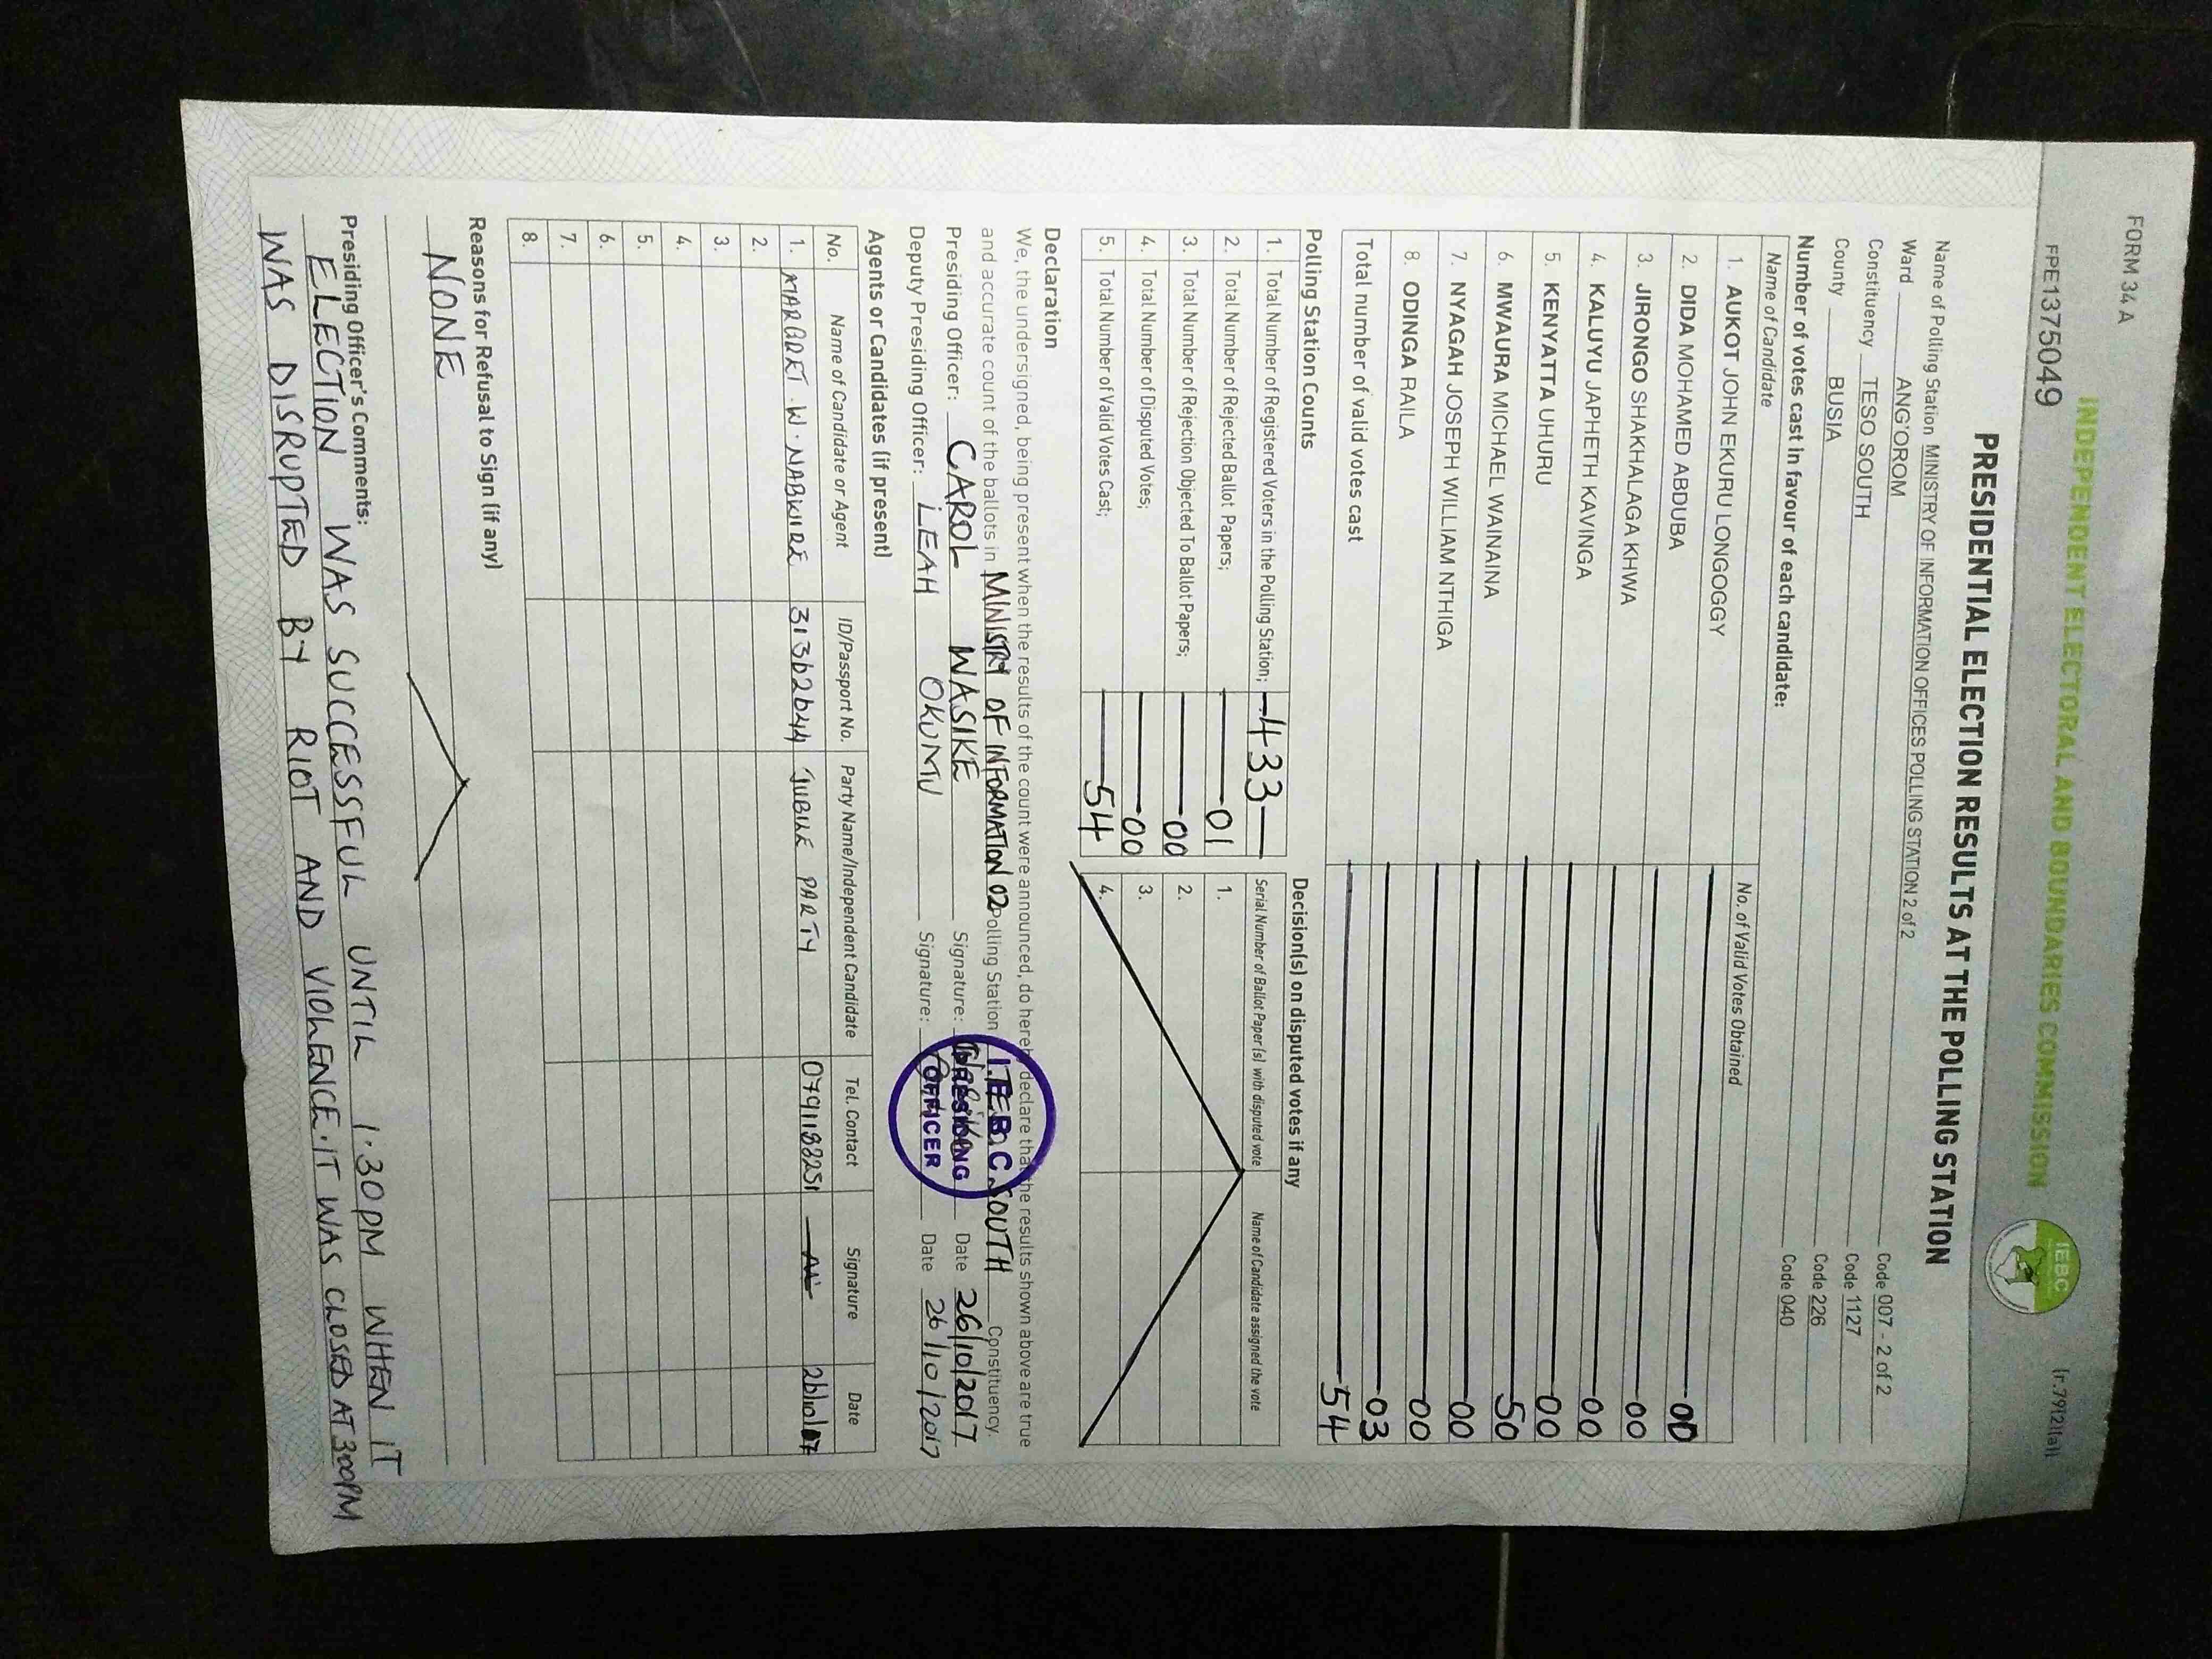 FORM 34 A
(r.79(2)(a))
INDEPENDENT ELECTORAL AND BOUNDARIES COMMISSION
IEBC
FPE1375049
PRESIDENTIAL ELECTION RESULTS AT THE POLLING STATION
Name of Polling Station MINISTRY OF INFORMATION OFFICES POLLING STATION 2 of 2 Code 007 - 2 of 2
Ward ANG'OROM Code 1127
Constituency TESO SOUTH Code 226
County BUSIA Code 040
Number of votes cast in favour of each candidate:
Name of Candidate No. of Valid Votes Obtained
1. AUKOT JOHN EKURU LONGOGGY
2. DIDA MOHAMED ABDUBA 00
3. JIRONGO SHAKHALAGA KHWA 00
4. KALUYU JAPHETH KAVINGA 00
5. KENYATTA UHURU 50
6. MWAURA MICHAEL WAINAINA 00
7. NYAGAH JOSEPH WILLIAM NTHIGA 00
8. ODINGA RAILA 03
Total number of valid votes cast 54
Polling Station Counts
1. Total Number of Registered Voters in the Polling Station; 433
2. Total Number of Rejected Ballot Papers; 01
3. Total Number of Rejection Objected To Ballot Papers; 00
4. Total Number of Disputed Votes; 00
5. Total Number of Valid Votes Cast; 54
Decision(s) on disputed votes if any
Serial Number of Ballot Paper(s) with disputed vote Name of Candidate assigned the vote
1.
2.
3.
4.
Declaration
We, the undersigned, being present when the results of the count were announced, do hereby declare that the results shown above are true
and accurate count of the ballots in MINISTRY OF INFORMATION 02 Polling Station SOUTH Constituency.
Presiding Officer: CAROL WASIKE Signature: Date 26/10/2017
Deputy Presiding Officer: LEAH OKUMU Signature: Date 26/10/2017
I.E.B.C.
PRESIDING
OFFICER
Agents or Candidates (if present)
No. Name of Candidate or Agent ID/Passport No. Party Name/Independent Candidate Tel. Contact Signature Date
1. MARGRET W. NABWIRE 31362644 JUBILEE PARTY 0791183251
2.
3.
4.
5.
6.
7.
8.
Reasons for Refusal to Sign (if any)
NONE
Presiding Officer's Comments:
ELECTION WAS SUCCESSFUL UNTIL 1.30PM WHEN IT
WAS DISRUPTED BY RIOT AND VIOLENCE. IT WAS CLOSED AT 3:00PM